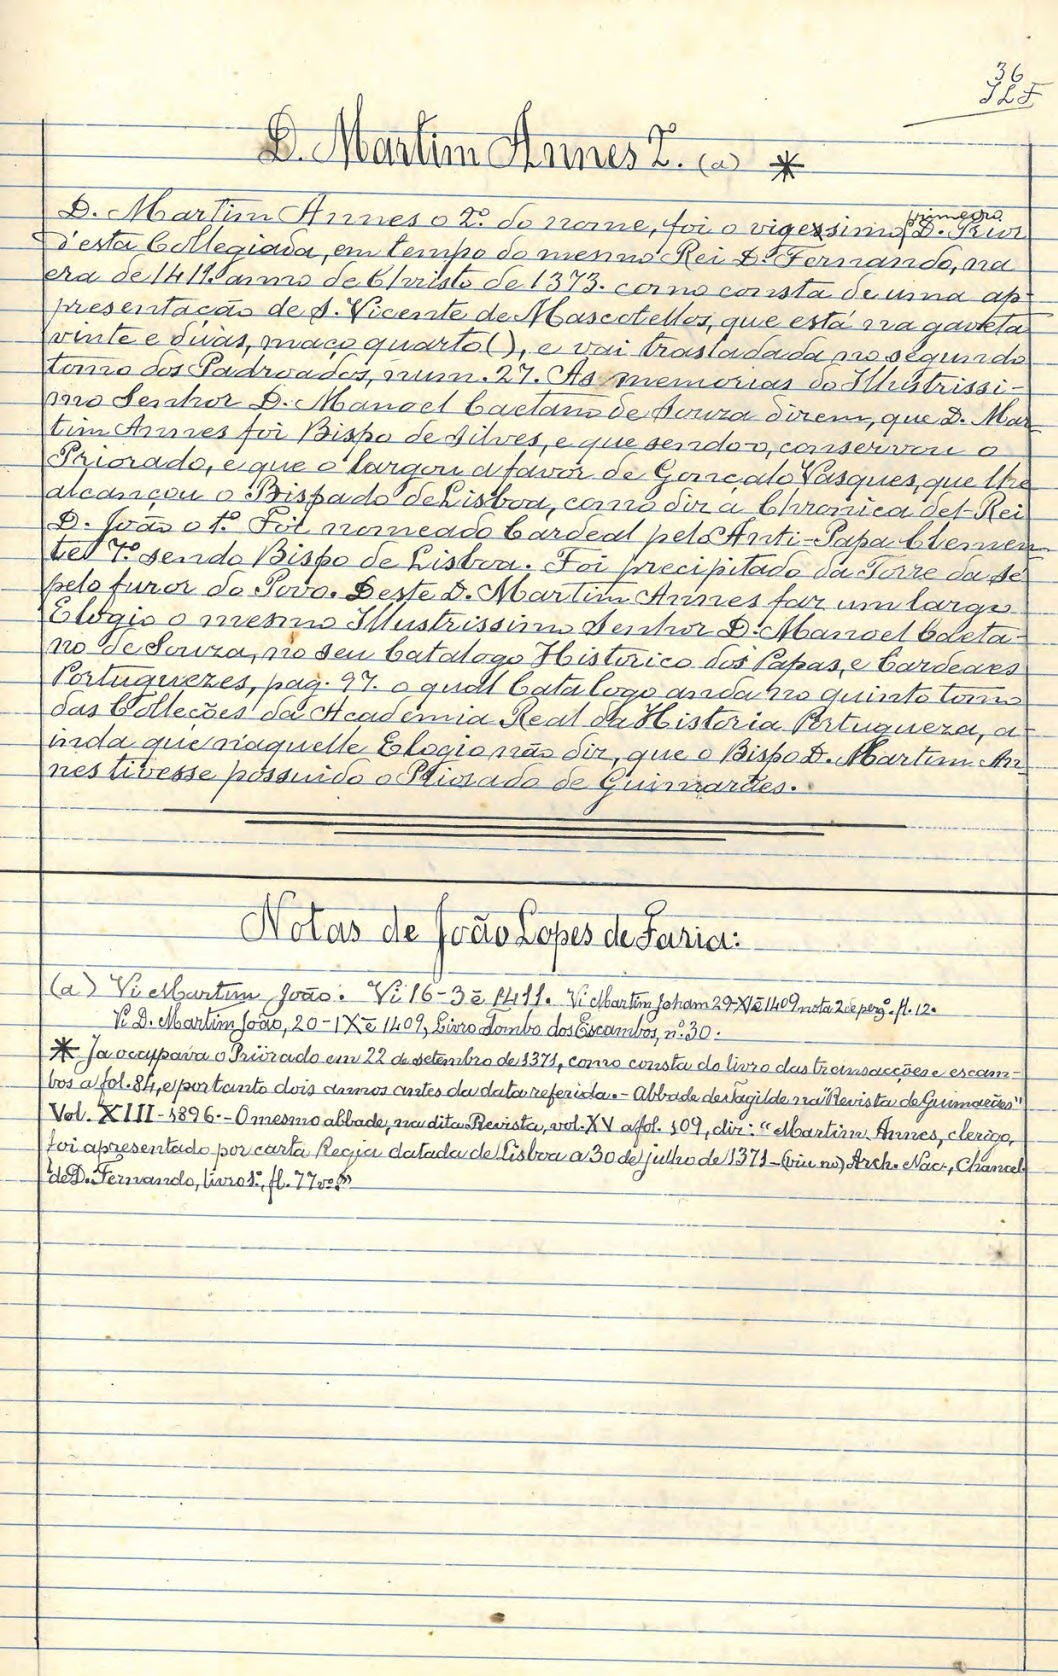 36
JLF
D. Martim Annes 2º. (a) *
D. Martim Annes o 2º. do nome, foi o vigessimo primeiro D. Prior
d'esta Collegiada, em tempo do mesmo Rei D. Fernando, na
era de 1411. anno de Christo de 1373. como consta de uma ap-
presentação de S. Vicente de Mascotellos, que está na gaveta
vinte e duas, maço quarto ( ), e vai trasladada no segundo
tomo dos Padroados, num. 27. As memorias do Illustrissi-
mo Senhor D. Manoel Caetano de Souza dizem, que D. Mar-
tim Annes foi Bispo de Silves, e que sendo-o, conservou o
Priorado, e que o largou a favor de Gonçalo Vasques, que lhe
alcançou o Bispado de Lisboa, como diz a Chronica del-Rei
D. João o 1º. Foi nomeado Cardeal pelo Anti-Papa Clemen-
te 7º. sendo Bispo de Lisboa. Foi precipitado da Torre da Sé
pelo furor do Povo. Deste D. Martim Annes faz um largo
Elogio o mesmo Illustrissimo Senhor D. Manoel Caeta-
no de Souza, no seu Catalogo Historico dos Papas, e Cardeaes
Portuguezes, pag. 97. o qual Catalogo anda no quinto tomo
das Colleções da Academia Real da Historia Portugueza, a-
inda que n'aquelle Elogio não diz, que o Bispo D. Martim An-
nes tivesse possuido o Priorado de Guimarães.
Notas de João Lopes de Faria:
(a) Vi Martim João. Vi 16-3 ē 1411. Vi Martim Joham 29-XI ē 1409 nota 2 de pergº. fl. 12.
Vi D. Martim João, 20-IX ē 1409, Livro Tombo dos Escambos, nº. 30.
* Ja occupava o Priorado em 22 de setembro de 1371, como consta do livro das transacções e escam-
bos a fol. 84, e portanto dois annos antes da data referida. - Abbade de Tagilde na "Revista de Guimarães"
Vol. XIII - 1896. - O mesmo abbade, na dita Revista, vol. XV a fol. 109, diz: "Martim Annes, clerigo,
foi apresentado por carta Regia datada de Lisboa a 30 de julho de 1371 - (viu no) Arch. Nac., Chancel.
de D. Fernando, livro 1º., fl. 77 vº."